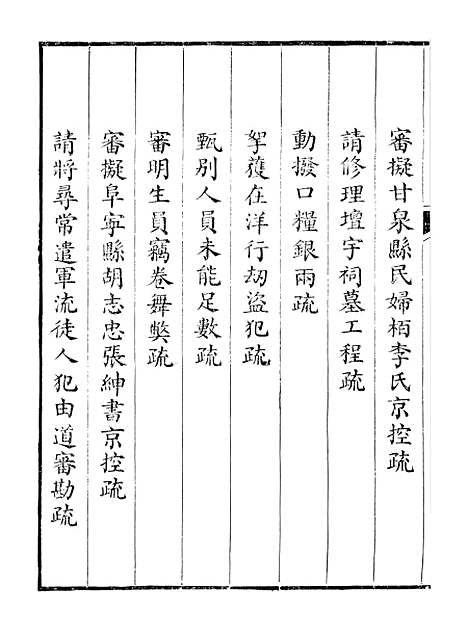 審擬甘泉縣民婦栢李氏京控疏
請修理壇宇祠墓工程疏
動撥口糧銀兩疏
拏獲在洋行刼盜犯疏
甄別人員未能足數疏
審明生員竊卷舞獘疏
審擬阜寧縣胡志忠張紳書京控疏
請將尋常遣軍流徒人犯由道審勘疏